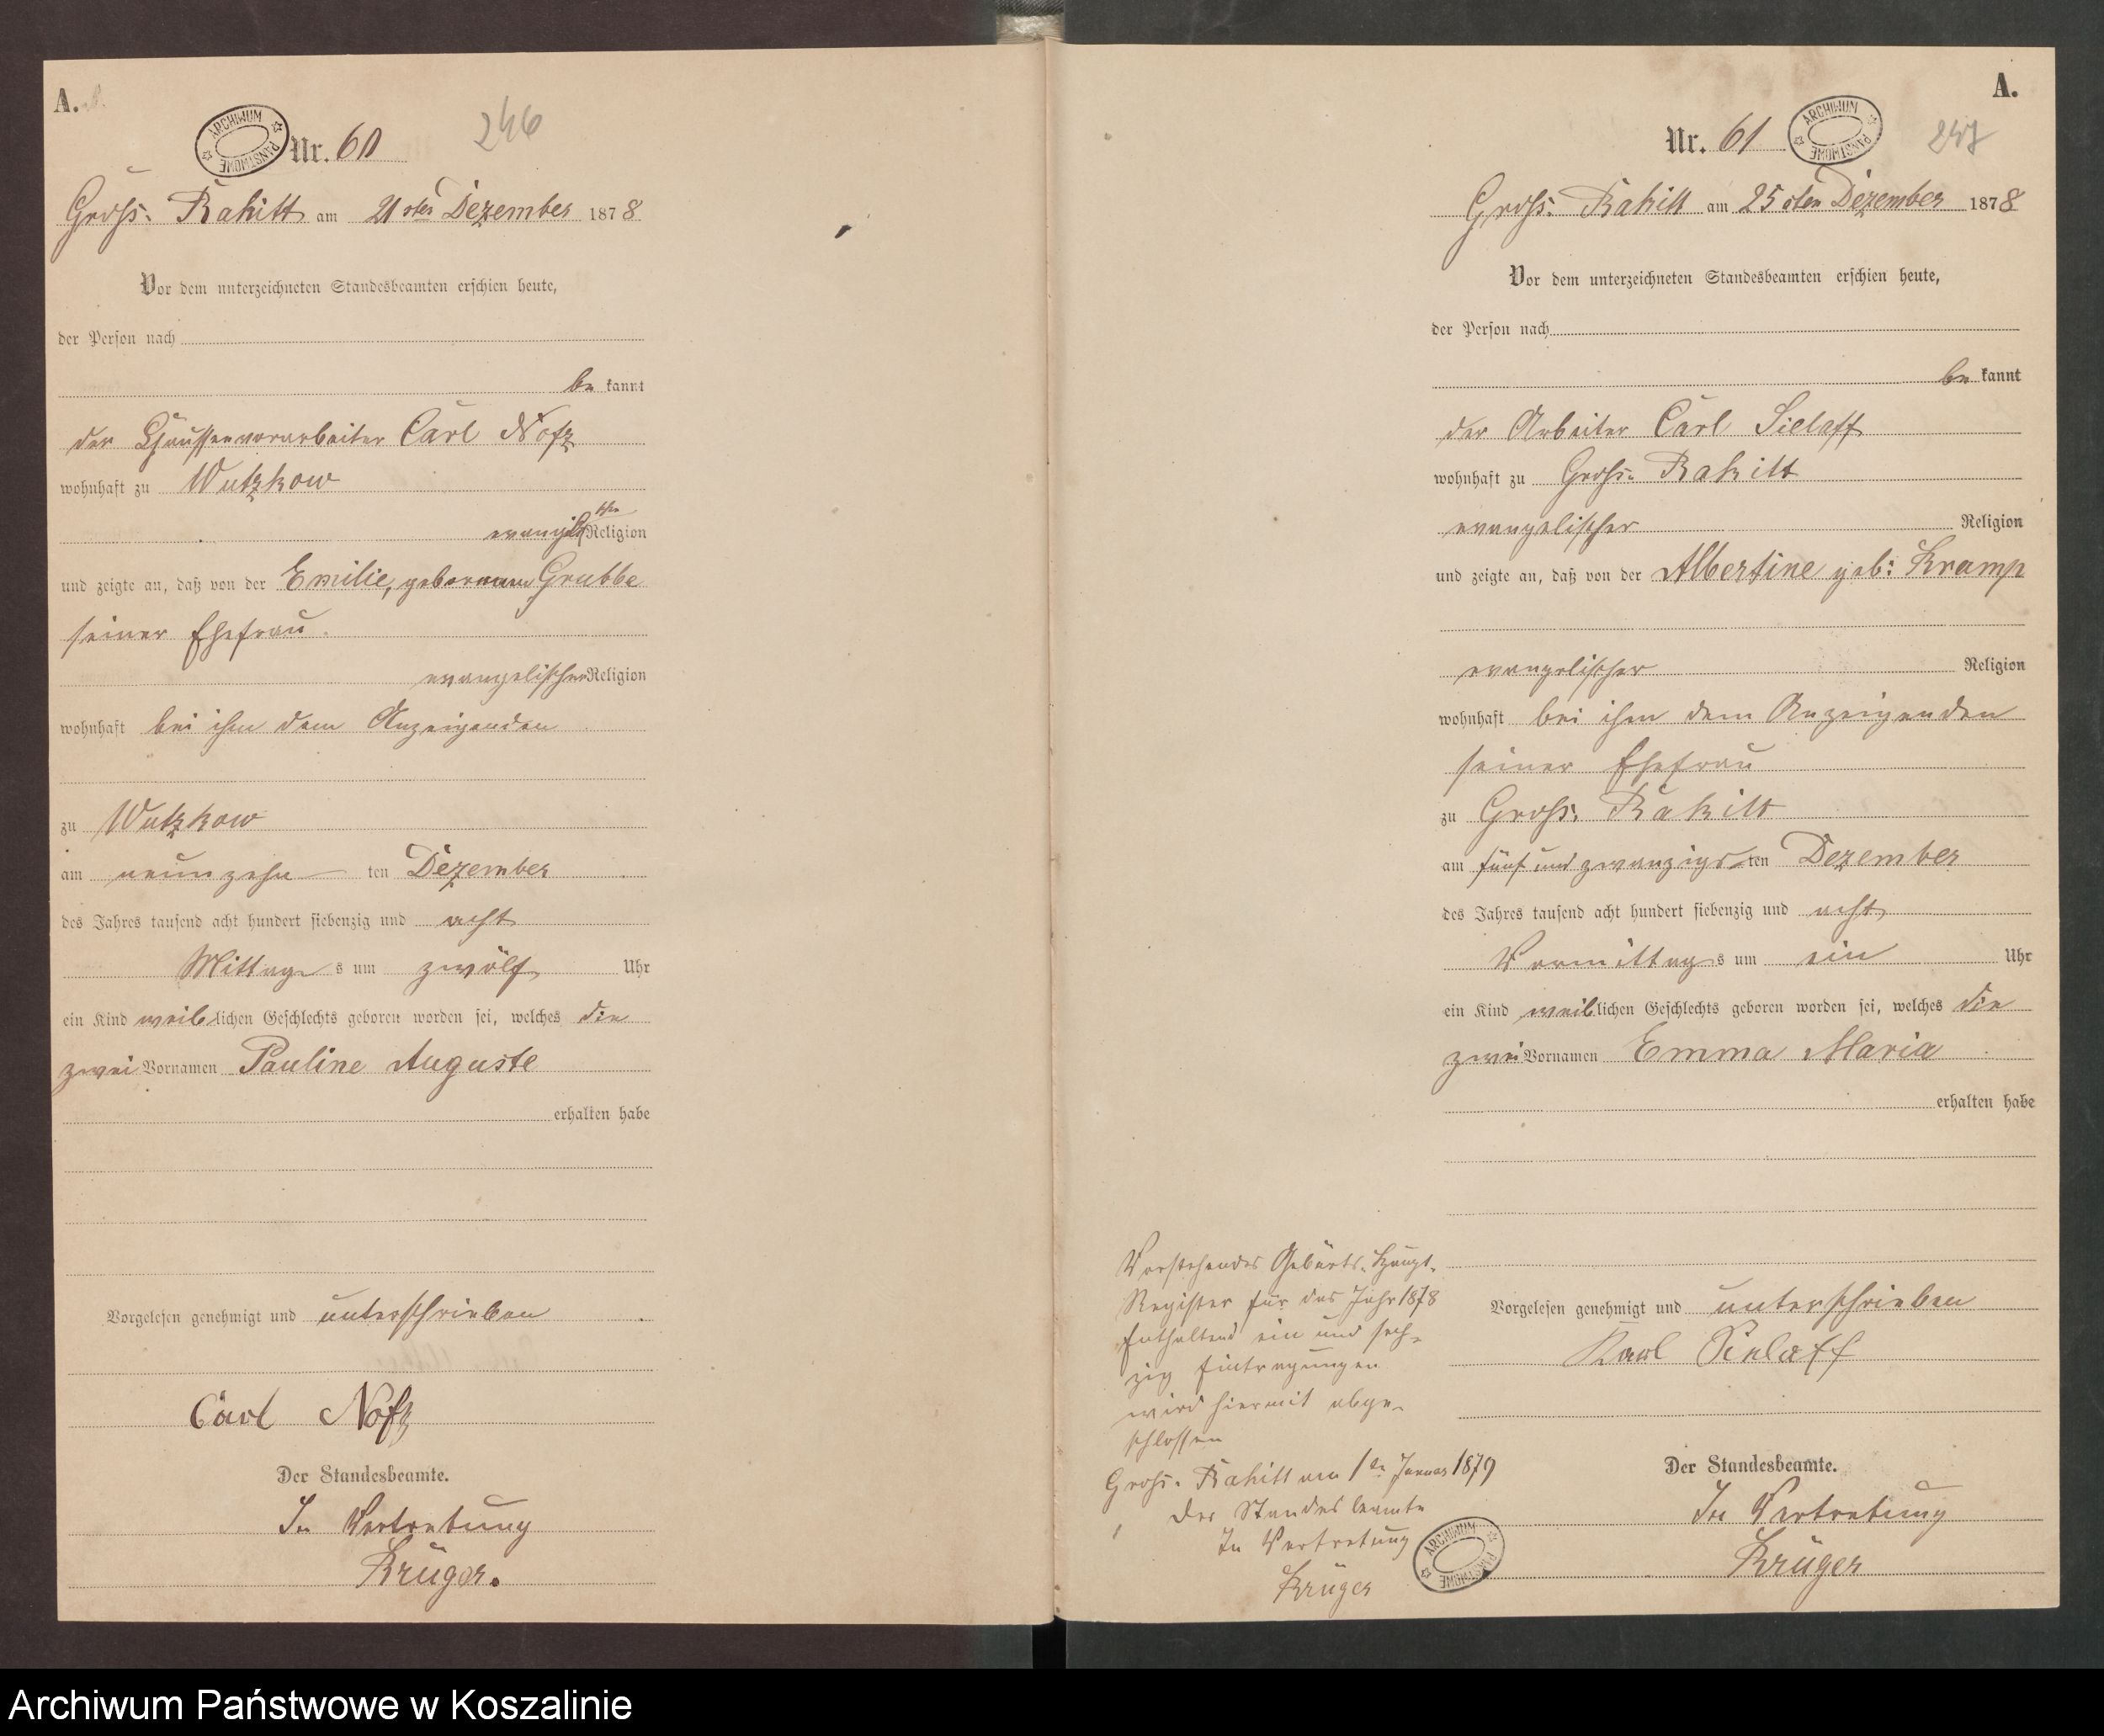 A.
ARCHIWUM PAŃSTWOWE
Nr. 60
246
Groß: Rakitt am 21sten Dezember 1878
Vor dem unterzeichneten Standesbeamten erschien heute,
der Person nach
be kannt
der Chausseevorarbeiter Carl Notz
wohnhaft zu Wutzkow
evangelischen Religion
und zeigte an, daß von der Emilie, geborenen Grubbe
seiner Ehefrau
evangelischer Religion
wohnhaft bei ihm dem Anzeigenden
zu Wutzkow
am neunzehn ten Dezember
des Jahres tausend acht hundert siebenzig und acht
Mittags um zwölf Uhr
ein Kind weiblichen Geschlechts geboren worden sei, welches die
zwei Vornamen Pauline Auguste
erhalten habe
Vorgelesen genehmigt und unterschrieben
Carl Notz
Der Standesbeamte.
In Vertretung
Krüger.
A.
Nr. 61
ARCHIWUM PAŃSTWOWE
247
Groß: Rakitt am 25sten Dezember 1878
Vor dem unterzeichneten Standesbeamten erschien heute,
der Person nach
be kannt
der Arbeiter Carl Sielaff
wohnhaft zu Groß: Rakitt
evangelischer Religion
und zeigte an, daß von der Albertine geb: Kramp
evangelischer Religion
wohnhaft bei ihm dem Anzeigenden
seiner Ehefrau
zu Groß: Rakitt
am fünf und zwanzigs ten Dezember
des Jahres tausend acht hundert siebenzig und acht
Vormittags um ein Uhr
ein Kind weiblichen Geschlechts geboren worden sei, welches die
zwei Vornamen Emma Maria
erhalten habe
Vorgelesen genehmigt und unterschrieben
Karl Sielaff
Der Standesbeamte.
In Vertretung
Krüger
Vorstehendes Geburts-Haupt-
Register für das Jahr 1878
Enthaltend ein und sech-
zig Eintragungen
wird hiermit abge-
schlossen
Groß: Rakitt am 1ten Januar 1879
Der Standesbeamte
In Vertretung
Krüger
ARCHIWUM PAŃSTWOWE
Archiwum Państwowe w Koszalinie